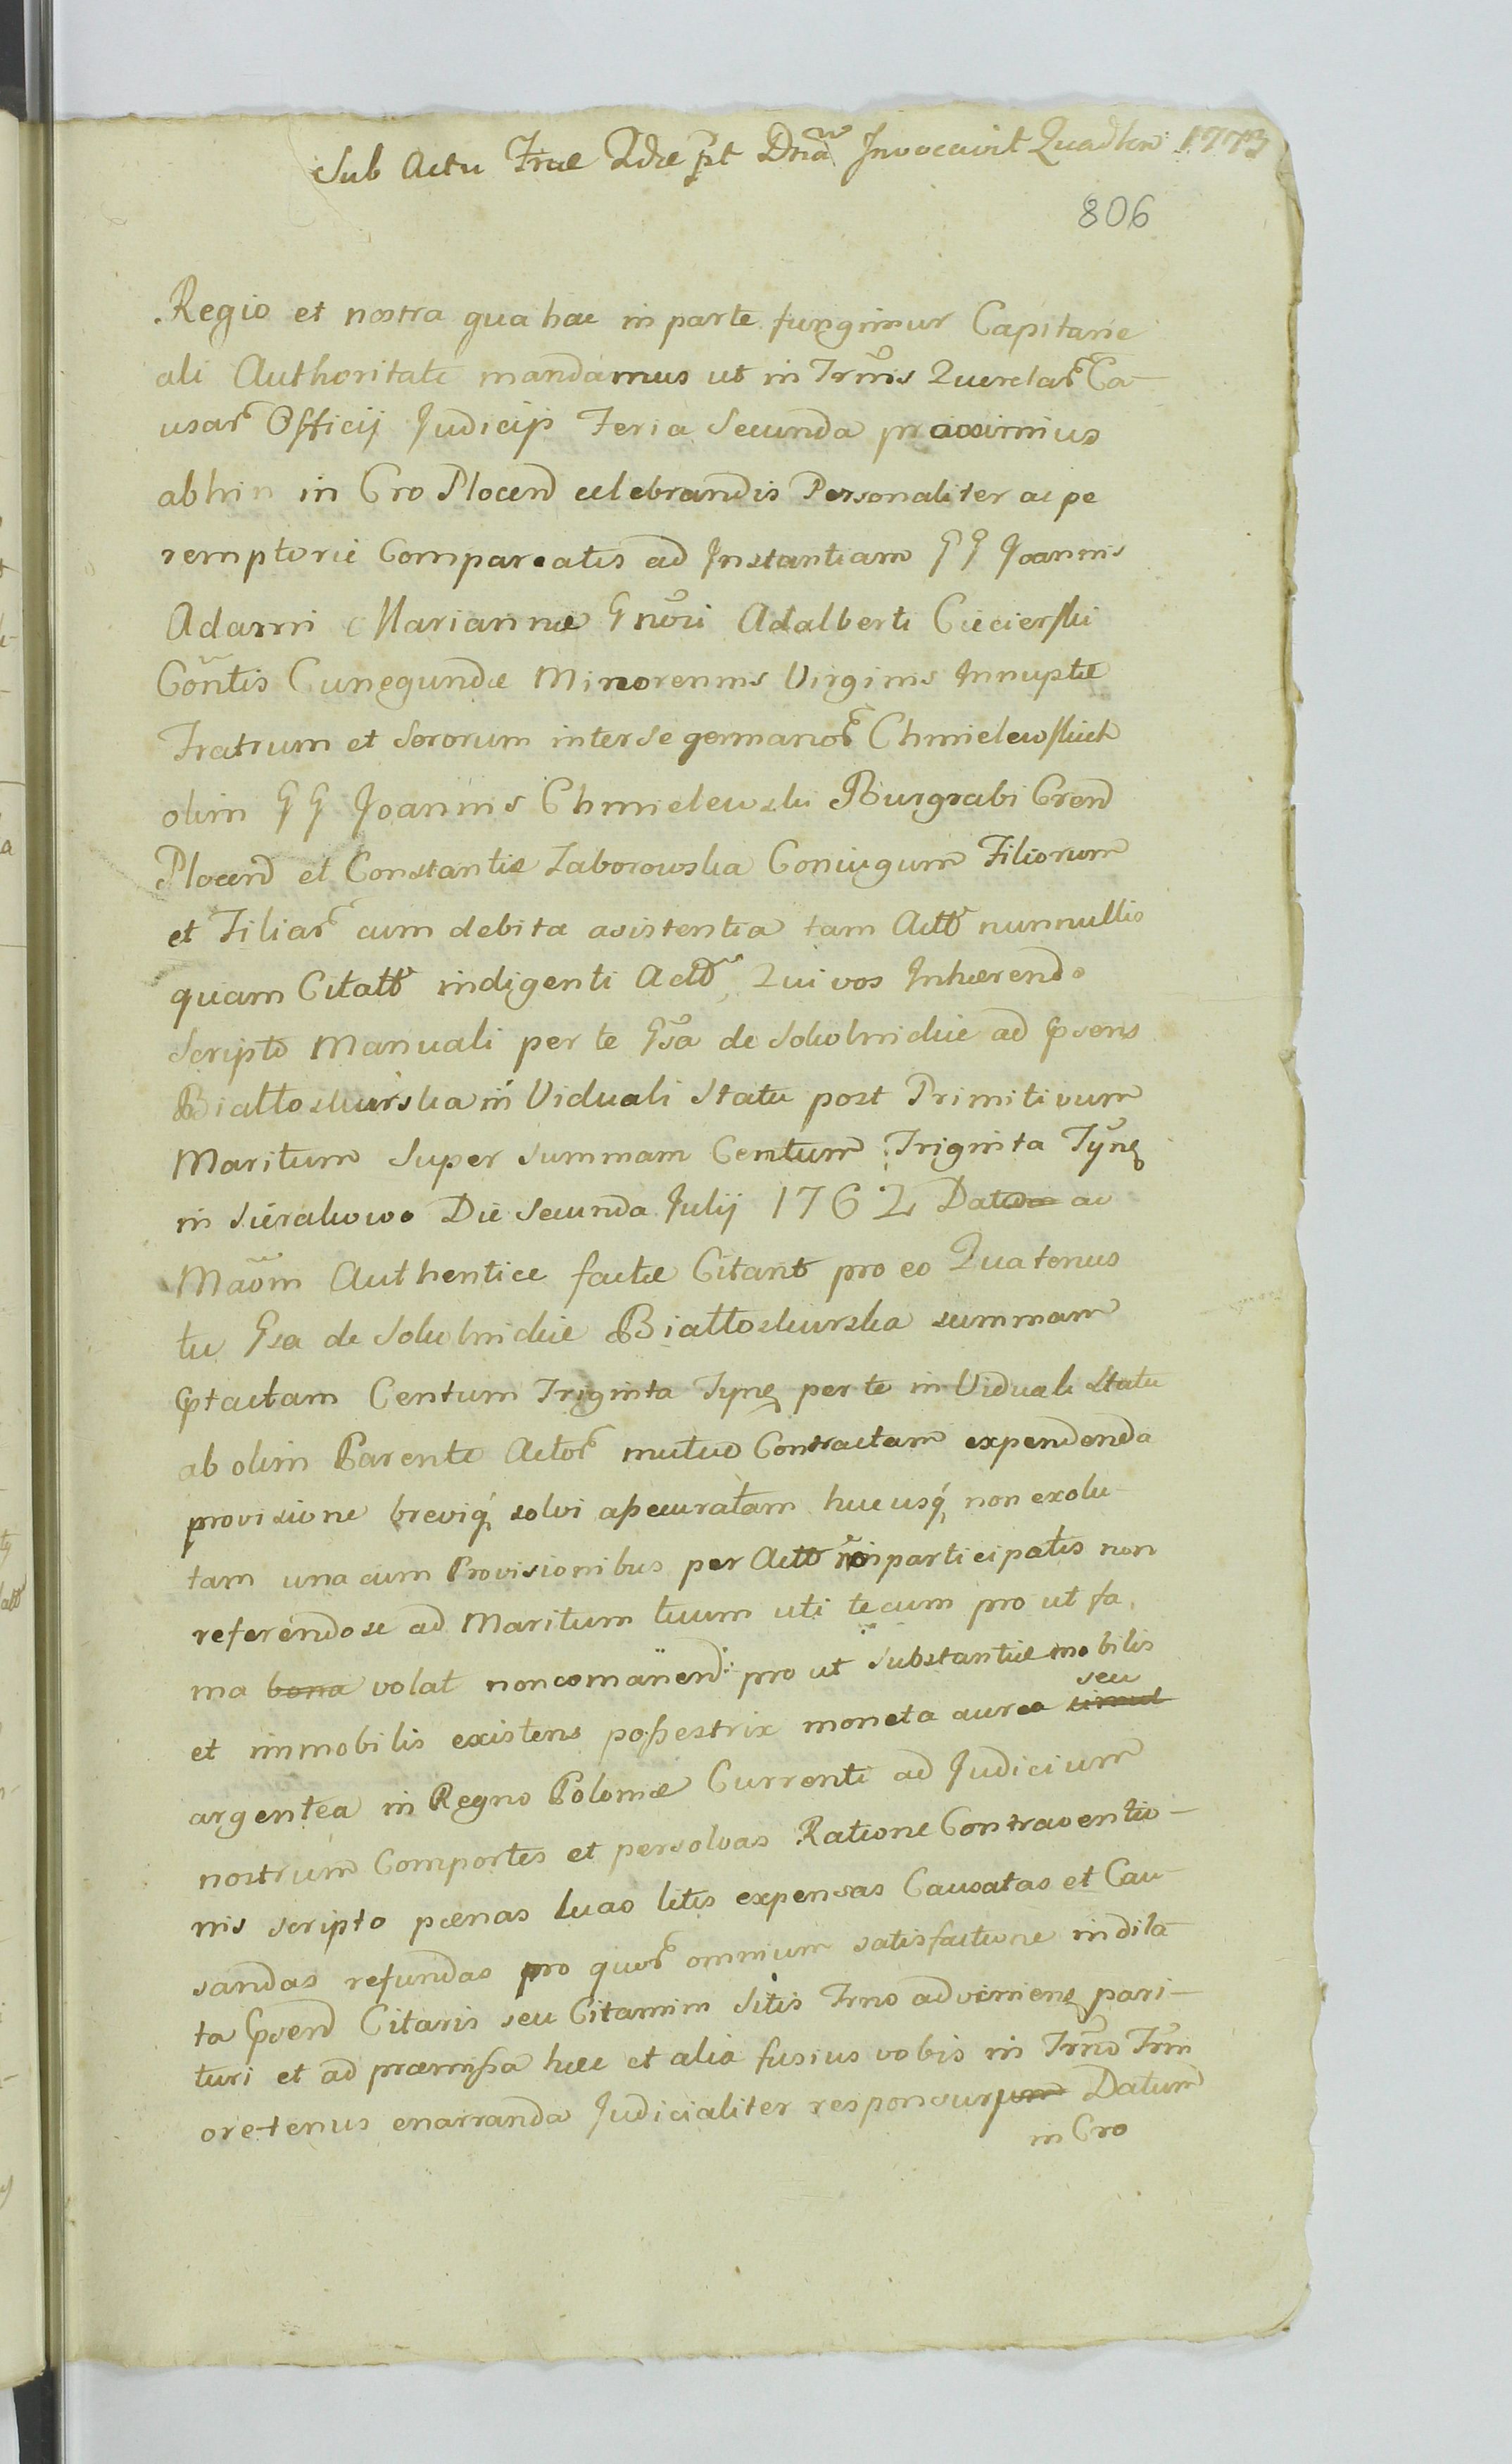 Sub Actu Friae 2dae pt Dnca Invocavit Quadlem: 1773
806
Regio et nostra qua hac in parte fungimur Capitane
ali Authoritate mandamus ut in Trmis Querelar Ca-
usar Officij Judicijs Feria Secunda proximius
abhin in Cro Plocen celebrandis Personaliter ac pe
remptorie Compareatis ad Instantiam GG Joannis
Adami Mariannae Gnosi Adalberti Ciecierski
Contis Cunegundae Minorennis Virginis Innuptae
Fratrum et Sororum inter se germanor Chmielewskich
olim GG Joannis Chmielewski Burgrabi Cren
Plocen et Constantiae Zaborowska Coniugum Filiorum
et Filiar cum debita asistentia tam Actor nunnullis
quam Citator indigenti Actor, Qui vos Inhaerendo
Scripto Manuali per te Gsa de Sokolnickie ad Psens
Białłoskurska in Viduali Statu post Primitivum
Maritum Super Summam Centum Triginta Tyn
in Sierakowo Die Secunda Julij 1762 Datum ac
Maom Authentice factae Citant pro eo Quatenus
tu Gsa de Sokolnickie Białłoskurska summam
Ptactam Centum Triginta Tyn per te in Viduali Statu
ab olim Parente Actor mutuo Contractam expendenda
provisione breviq solvi assecuratam hucusq non exolu-
tam una cum Provisionibus per Actor non participatis non
referendo se ad Maritum tuum uti tecum pro ut fa,
ma bona volat noncomanend: pro ut Substantiae mobilis
et immobilis existens possestrix moneta aurea simul seu
argentea in Regno Poloniae Currenti ad Judicium
nostrum Comportes et persolvas Ratione Contraventio-
nis scripto paenas luas litis expensas Causatas et Cau-
sandas refundas pro quor omnium satisfactione indila
ta Psend Citaris seu Citamini Sitis Trno advenien pari-
turi et ad praemissa haec et alia fusius vobis in Trno Trm
oretenus enarranda Judicialiter responsurum Datum
in Cro